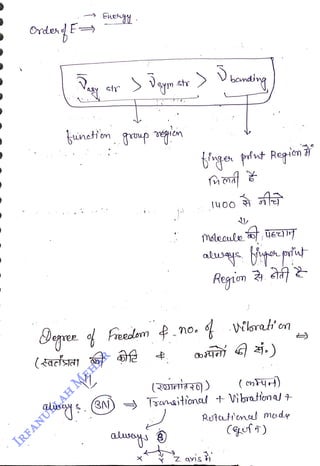 → Energy
Order of E ⇒
ν̄ asy str > ν̄ sym str > ν̄ banding
function group region
finger print Region में
मिलती है
1400 से नीचे
⇓
molecule की पहचान
always finger print
Region से होती है
Degree of Freedom & no. of Vibration ⇒
(स्वतंत्रता की कोटि & कम्पनों की सं.)
(स्थानांतरण) (कम्पन)
always (3N) ⇒ Transitional + Vibrational +
Rotational mode
(घूर्णन)
always 3
X Y Z axis में
IRFANULLAH MEHER